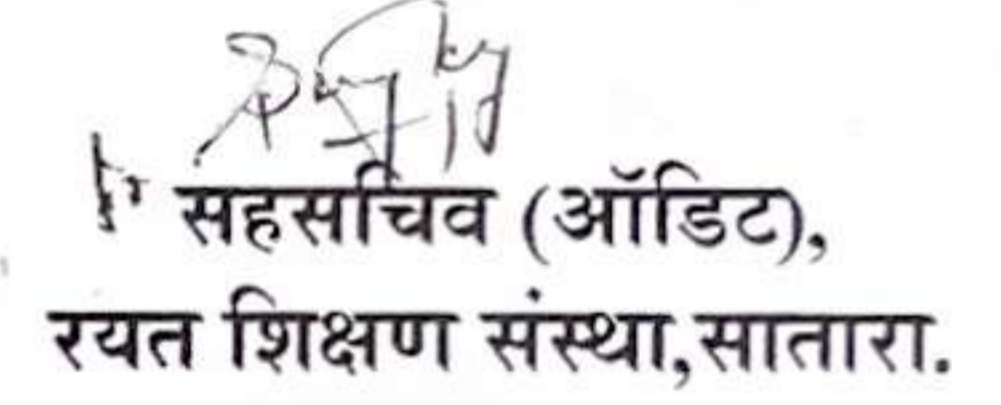 for सहसचिव (ऑडिट),
रयत शिक्षण संस्था,सातारा.